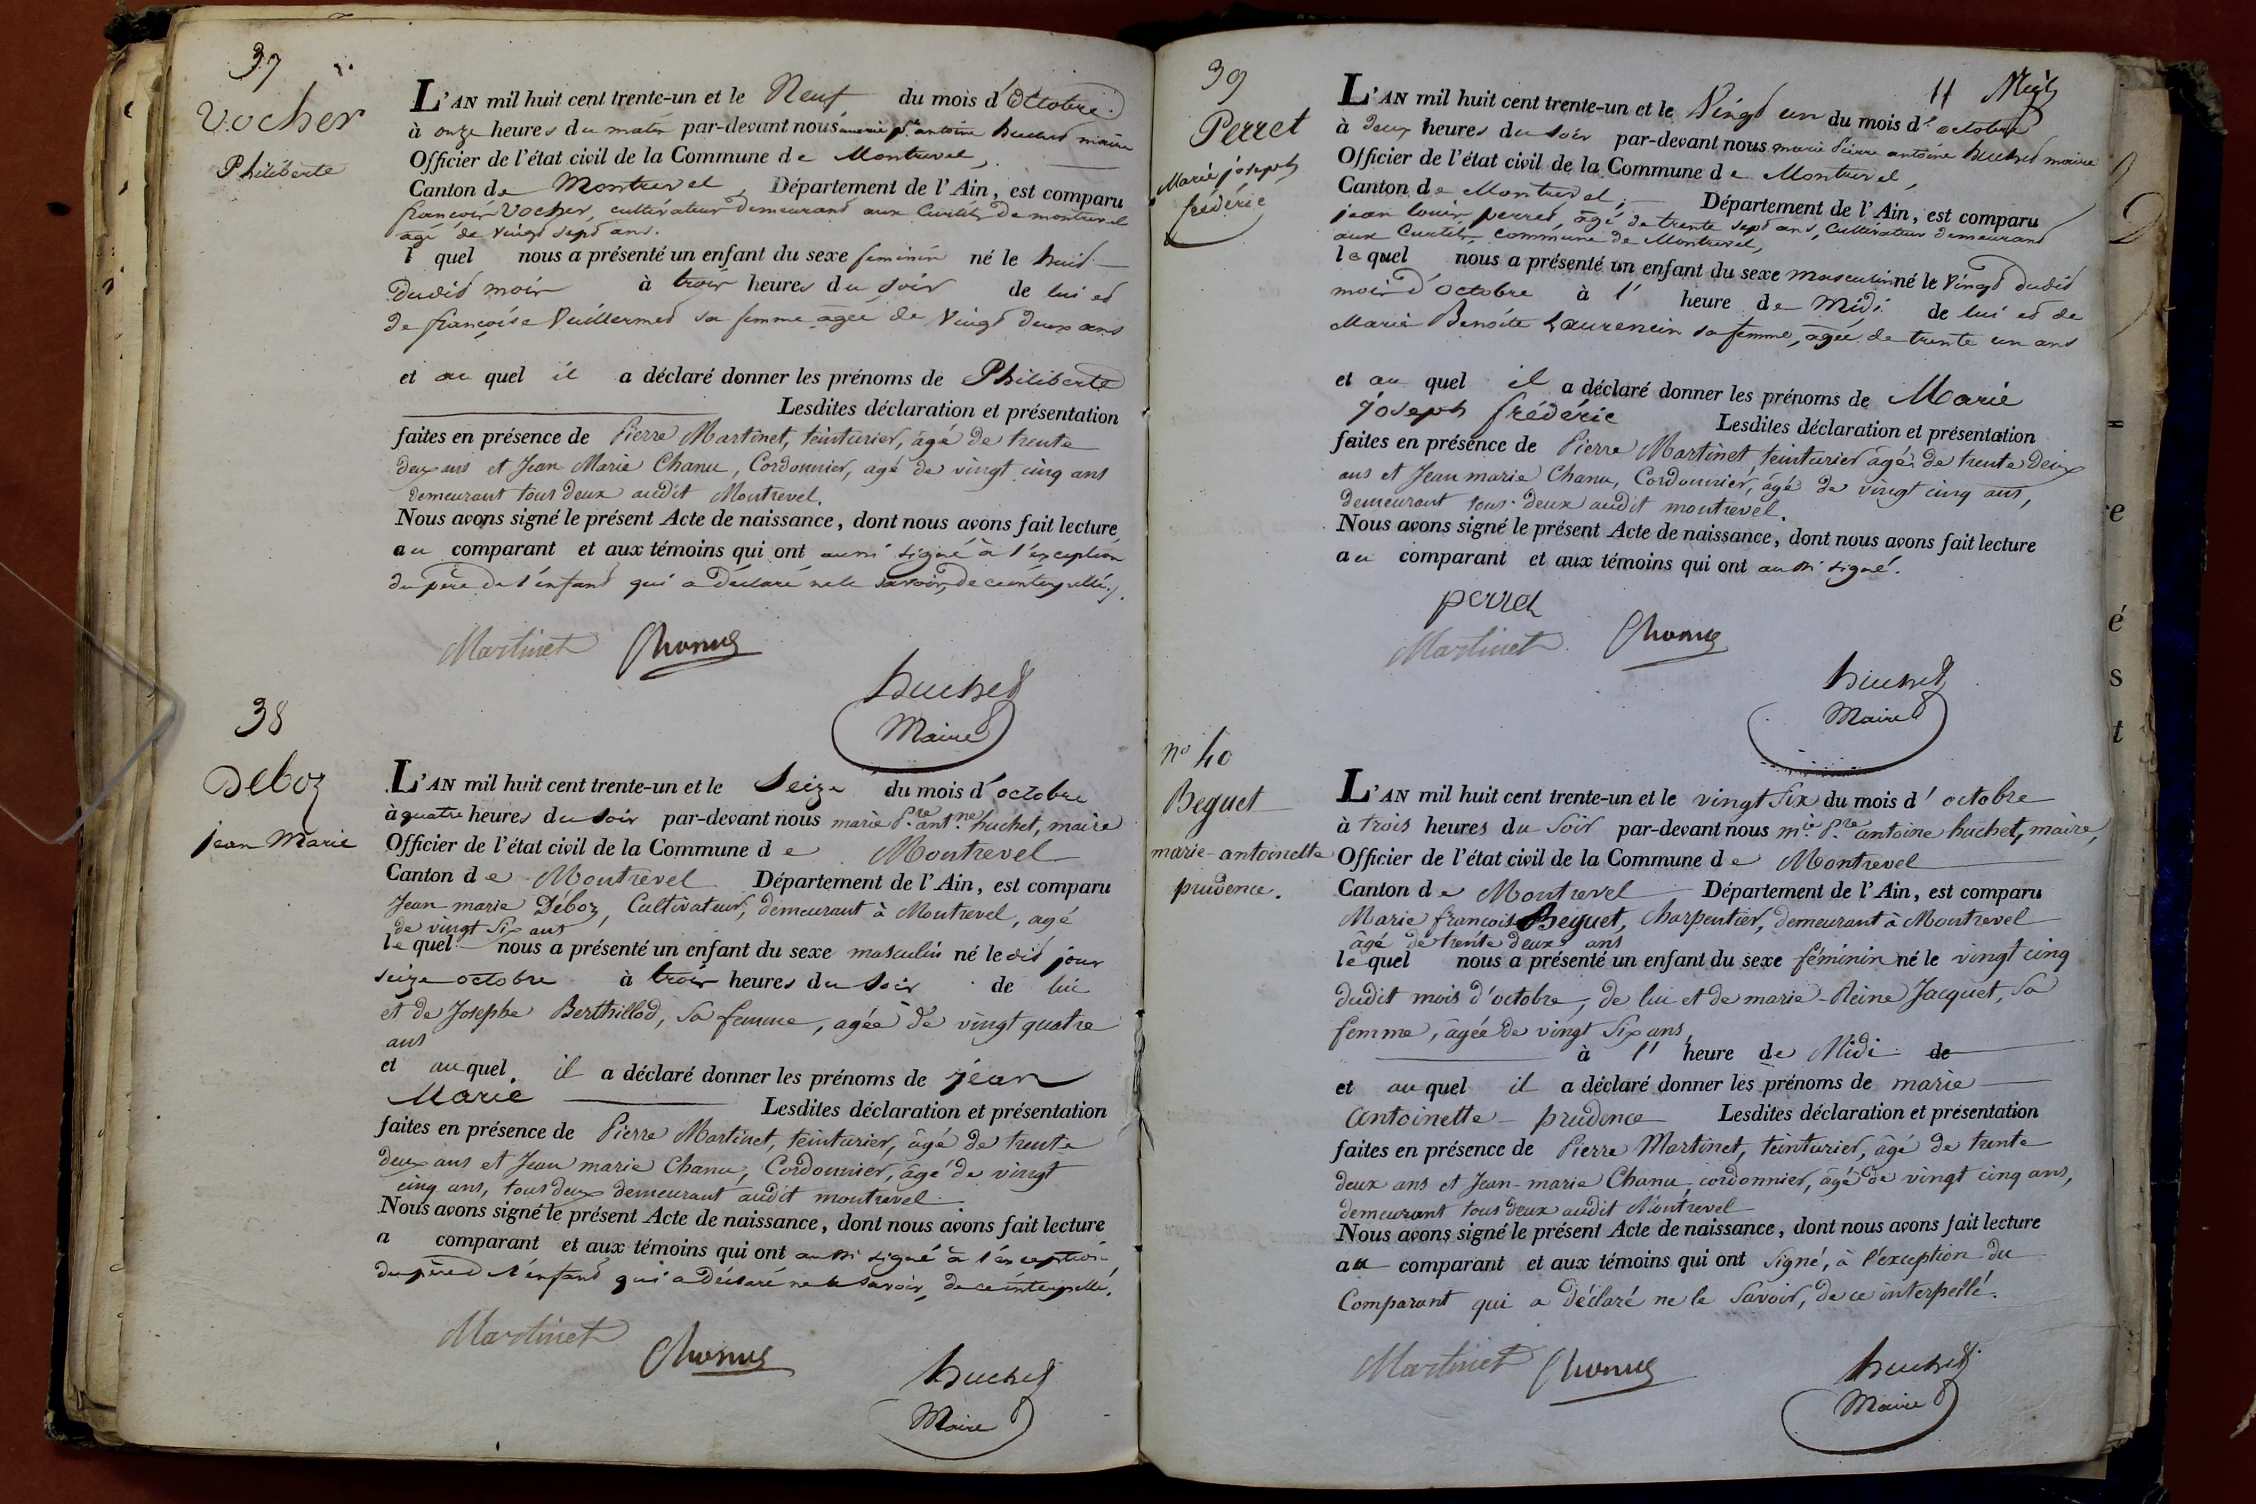 37
Vocher
Philiberte
L'AN mil huit cent trente-un et le Neuf du mois d'Octobre
à onze heures du matin par-devant nous marie p.re antoine huchet maire
Officier de l'état civil de la Commune de Montrevel,
Canton de Montrevel, Département de l'Ain, est comparu
françois Vocher, cultivateur demeurant aux Curtils de montrevel
agé de vingt sept ans.
l quel nous a présenté un enfant du sexe feminin né le huit
dudit mois à trois heures du soir de lui et
de françoise Vuillermet sa femme agée de vingt deux ans
et au quel il a déclaré donner les prénoms de Philiberte
Lesdites déclaration et présentation
faites en présence de Pierre Martinet, teinturier, âgé de trente
deux ans et Jean Marie Chanu, Cordonnier, agé de vingt cinq ans
demeurant tous deux audit Montrevel.
Nous avons signé le présent Acte de naissance, dont nous avons fait lecture
au comparant et aux témoins qui ont aussi signé à l'exception
du père de l'enfant qui a déclaré ne le savoir, de ce interpellé.
Martinet Chanu
huchet
Maire
38
Deboz
jean Marie
L'AN mil huit cent trente-un et le Seize du mois d'octobre
à quatre heures du soir par-devant nous marie P.re ant.ne huchet, maire
Officier de l'état civil de la Commune de Montrevel
Canton de Montrevel Département de l'Ain, est comparu
Jean marie Deboz, Cultivateur, demeurant à Montrevel, agé
de vingt Six ans
lequel nous a présenté un enfant du sexe masculin né le dit jour
seize octobre à trois heures du soir de lui
et de Josephe Berthillod, Sa femme, agée de vingt quatre
ans
et auquel il a déclaré donner les prénoms de jéan
Marie Lesdites déclaration et présentation
faites en présence de Pierre Martinet, teinturier, âgé de trente
deux ans et Jean marie Chanu, Cordonnier, âgé de vingt
cinq ans, tous deux demeurant audit montrevel.
Nous avons signé le présent Acte de naissance, dont nous avons fait lecture
a comparant et aux témoins qui ont aussi signé à l'exception
du père de l'enfant qui a déclaré ne le savoir, de ce interpellé.
Martinet
Chanu
huchet
Maire
39
Perret
Marie joseph
frédéric
11
L'AN mil huit cent trente-un et le Vingt un du mois d'octobre
à deux heures du soir par-devant nous marie Pierre antoine huchet maire
Officier de l'état civil de la Commune de Montrevel,
Canton de Montrevel, Département de l'Ain, est comparu
jean louis perret âgé de trente sept ans, cultivateur demeurant
aux Curtils commune de Montrevel,
lequel nous a présenté un enfant du sexe masculin né le vingt dudit
mois d'octobre à l' heure de Midi de lui et de
Marie Benoite Laurencin sa femme, agée de trente un ans
et au quel il a déclaré donner les prénoms de Marie
joseph frédéric Lesdites déclaration et présentation
faites en présence de Pierre Martinet teinturier âgé de trente deux
ans et Jean marie Chanu, Cordonnier, âgé de vingt cinq ans,
demeurant tous deux audit montrevel.
Nous avons signé le présent Acte de naissance, dont nous avons fait lecture
au comparant et aux témoins qui ont aussi signé.
perret
Martinet Chanu
huchet
Maire
no 40
Beguet
marie-antoinette
prudence.
L'AN mil huit cent trente-un et le vingt Six du mois d'octobre
à trois heures du Soir par-devant nous m.ie P.re antoine huchet, maire,
Officier de l'état civil de la Commune de Montrevel
Canton de Montrevel Département de l'Ain, est comparu
Marie françois Beguet, Charpentier, demeurant à Montrevel
âgé de trente deux ans
lequel nous a présenté un enfant du sexe féminin né le vingt cinq
dudit mois d'octobre, de lui et de marie-Reine Jacquet, Sa
femme, âgée de vingt Six ans,
à l' heure de Midi de
et auquel il a déclaré donner les prénoms de marie
antoinette-prudence Lesdites déclaration et présentation
faites en présence de Pierre Martinet, teinturier, âgé de trente
deux ans et Jean-marie Chanu, cordonnier, âgé de vingt cinq ans,
demeurant tous deux audit Montrevel
Nous avons signé le présent Acte de naissance, dont nous avons fait lecture
au comparant et aux témoins qui ont Signé, à l'exception du
Comparant qui a déclaré ne le Savoir, de ce interpellé.
Martinet Chanu
huchet
Maire
e
é
s
t